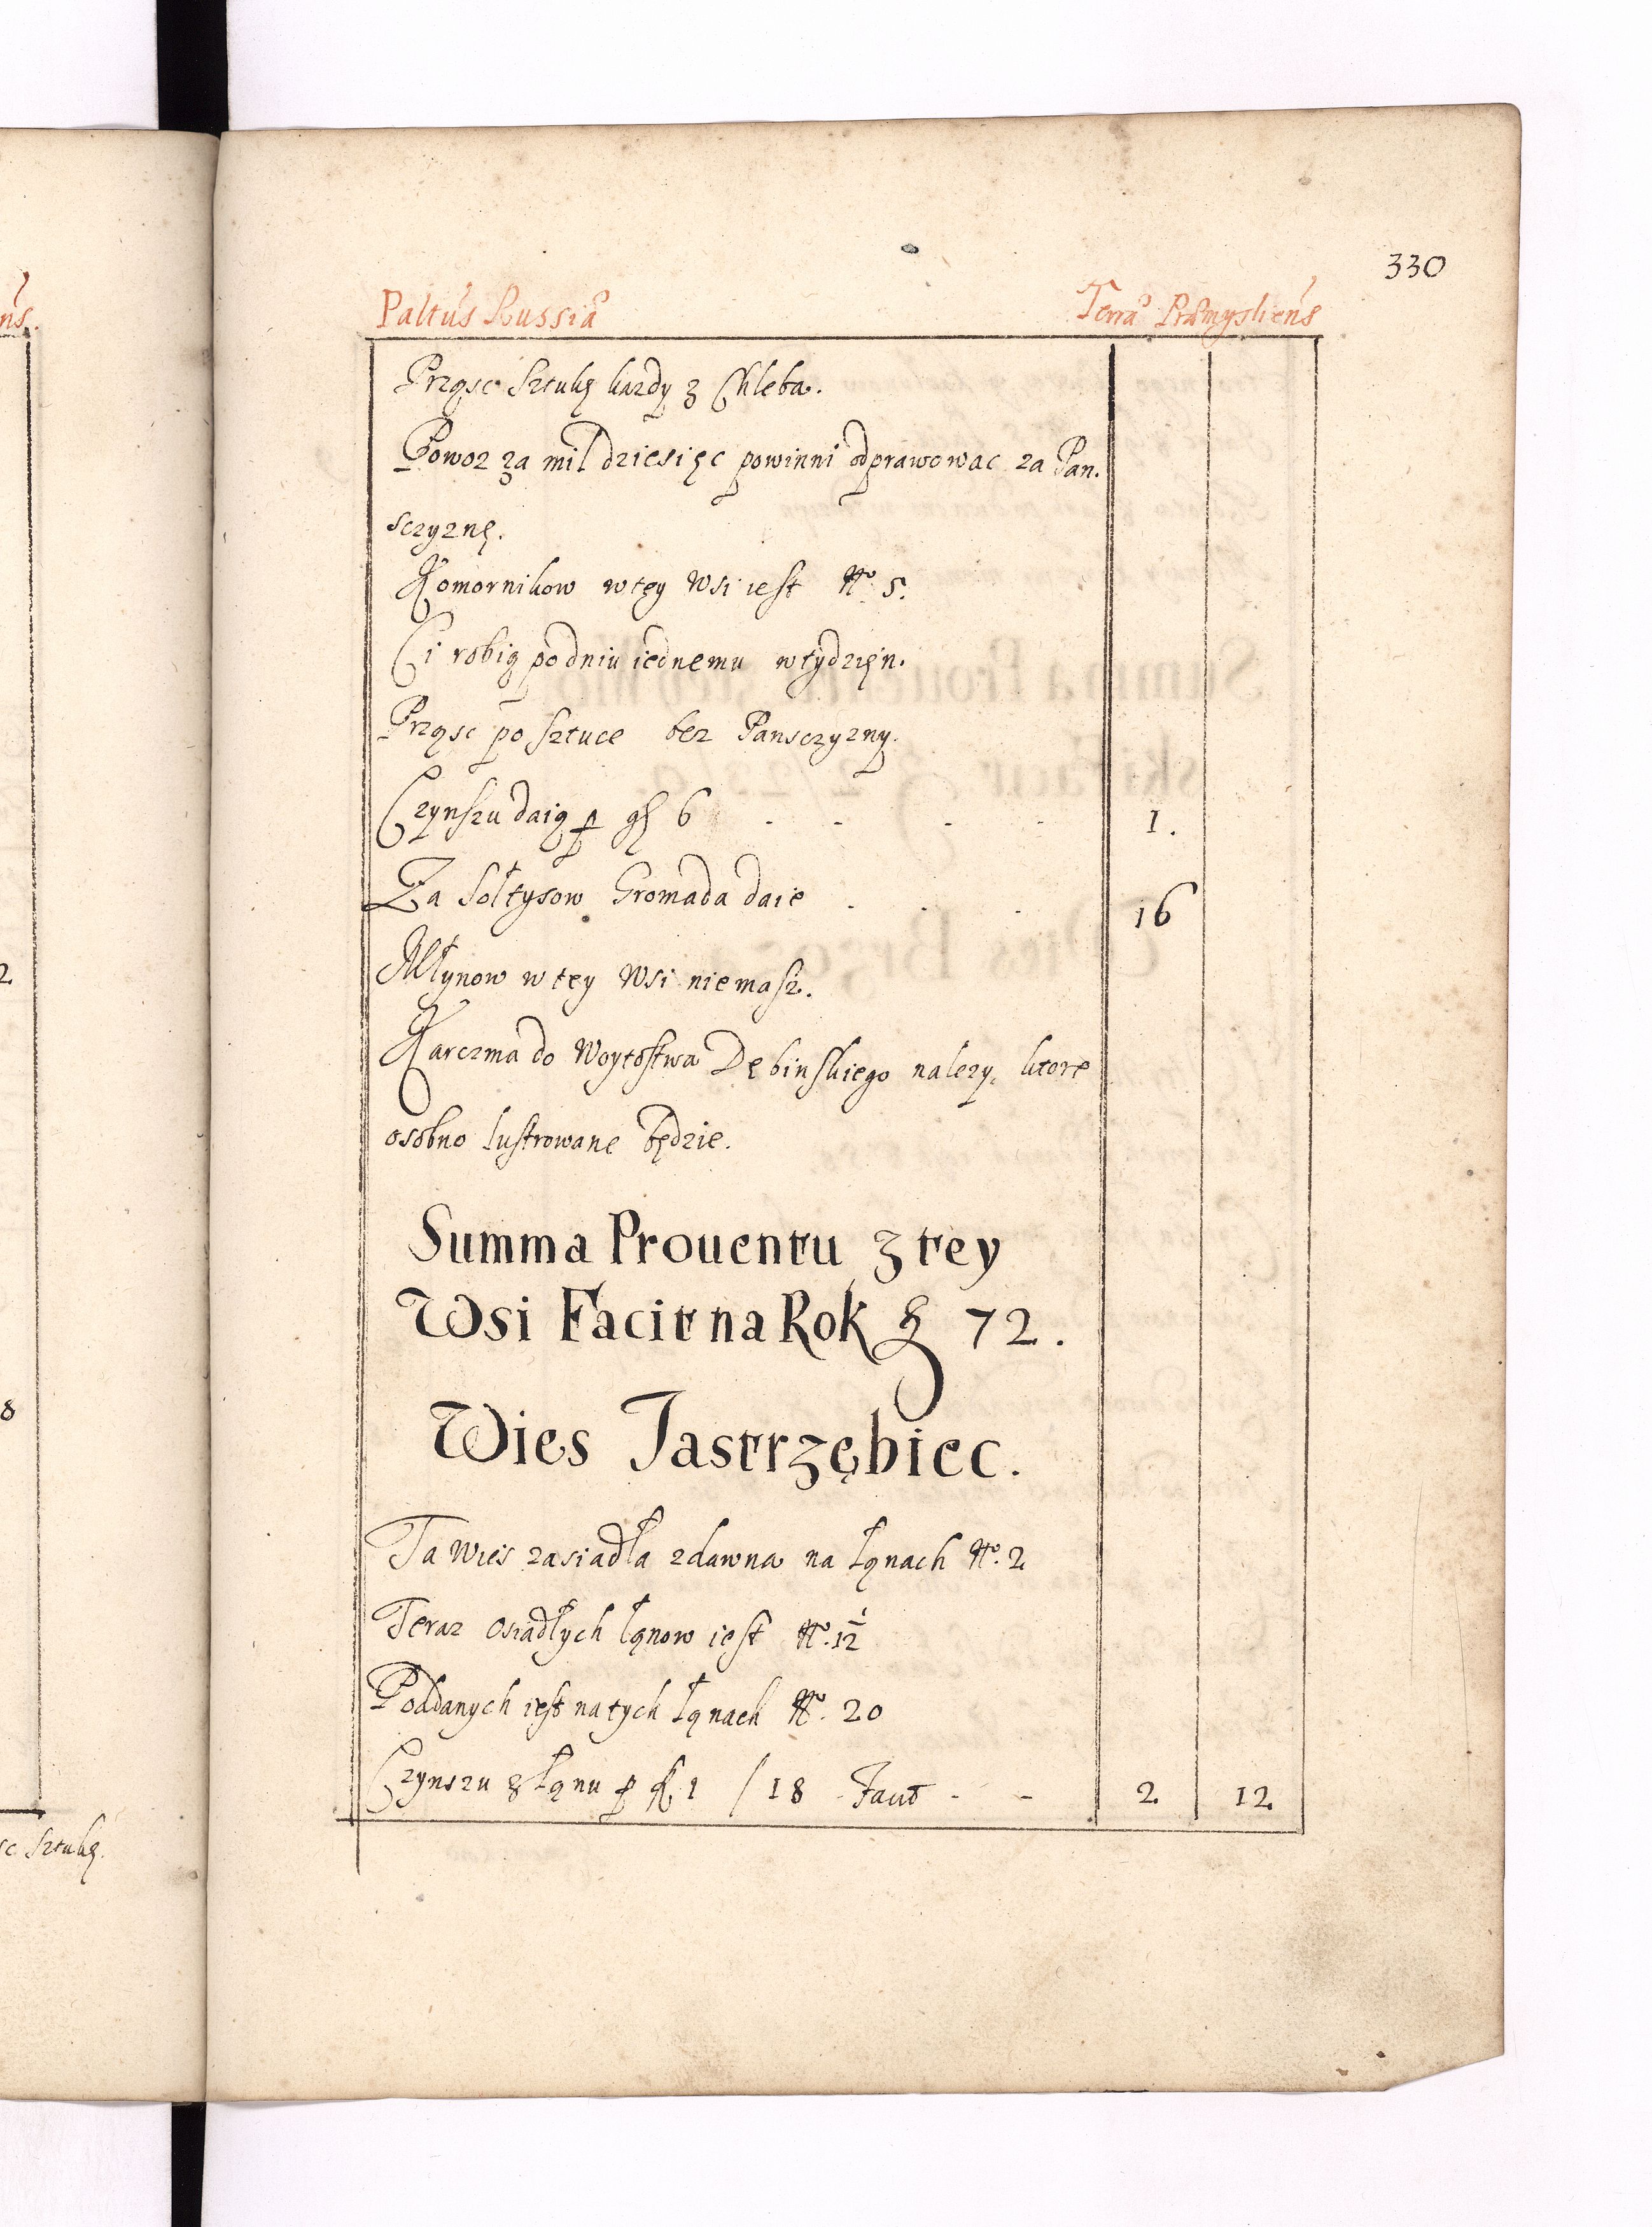 330
Paltus Russia Terra Præmysliens
Prząsc Sztukę kazdy z Chleba.
Powoz za mil dziesięc powinni odprawowac za Pan.
sczyznę.
Komornikow w tey Wsi iest No. 5.
Ci robią po dniu iednemu w tydzięn.
Prząsc po sztuce bez Pansczyzny.
Czynszu daią p gs 6 - - - - 1.
Za Sołtysow Gromada daie . . . 16
Młynow w tey Wsi niemasz.
Karczma do Woytostwa Dębinskiego nalezy, ktore
osobno lustrowane będzie.
Summa Prouentu z tey
Wsi Facit na Rok 72.
Wies Jastrzębiec.
Ta Wies zasiadła zdawna na Łąnach No. 2
Teraz Osiadłych łąnow iest No. 1 1/2
Poddanych iest na tych Łąnach No. 20
Czynszu z Łąnu p 1 / 18 Faut - - 2 12
ns.
2
8
sc Sztukę.